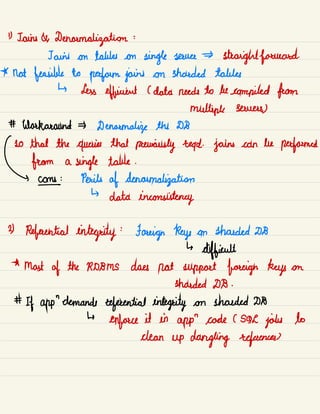 1) Joins & Denormalization :
Joins on tables on single server ⇒ straightforward
* Not feasible to perform joins on sharded tables
↳ Less efficient (data needs to be compiled from
multiple servers)
# Workaround ⇒ Denormalize the DB
( so that the queries that previously reqd. joins can be performed
from a single table.
→ cons : Perils of denormalization
↳ data inconsistency
2) Referential integrity : foreign keys on sharded DB
↳ difficult
* Most of the RDBMS does not support foreign keys on
sharded DB.
# If appⁿ demands referential integrity on sharded DB
↳ enforce it in appⁿ code (SQL jobs to
clean up dangling references)